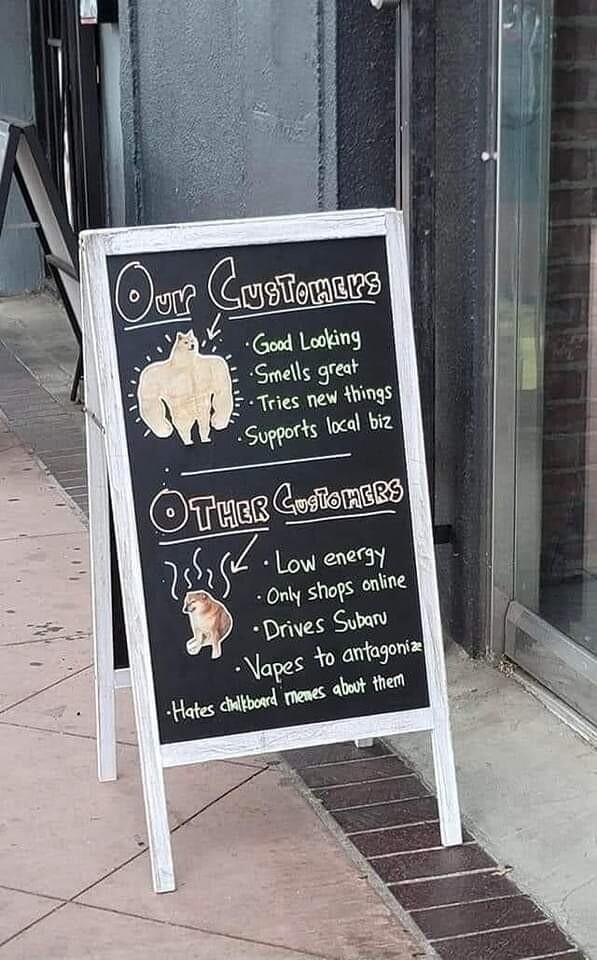 Our Customers
· Good Looking
· Smells great
· Tries new things
· Supports local biz
Other Customers
· Low energy
· Only shops online
· Drives Subaru
· Vapes to antagonize
· Hates chalkboard memes about them